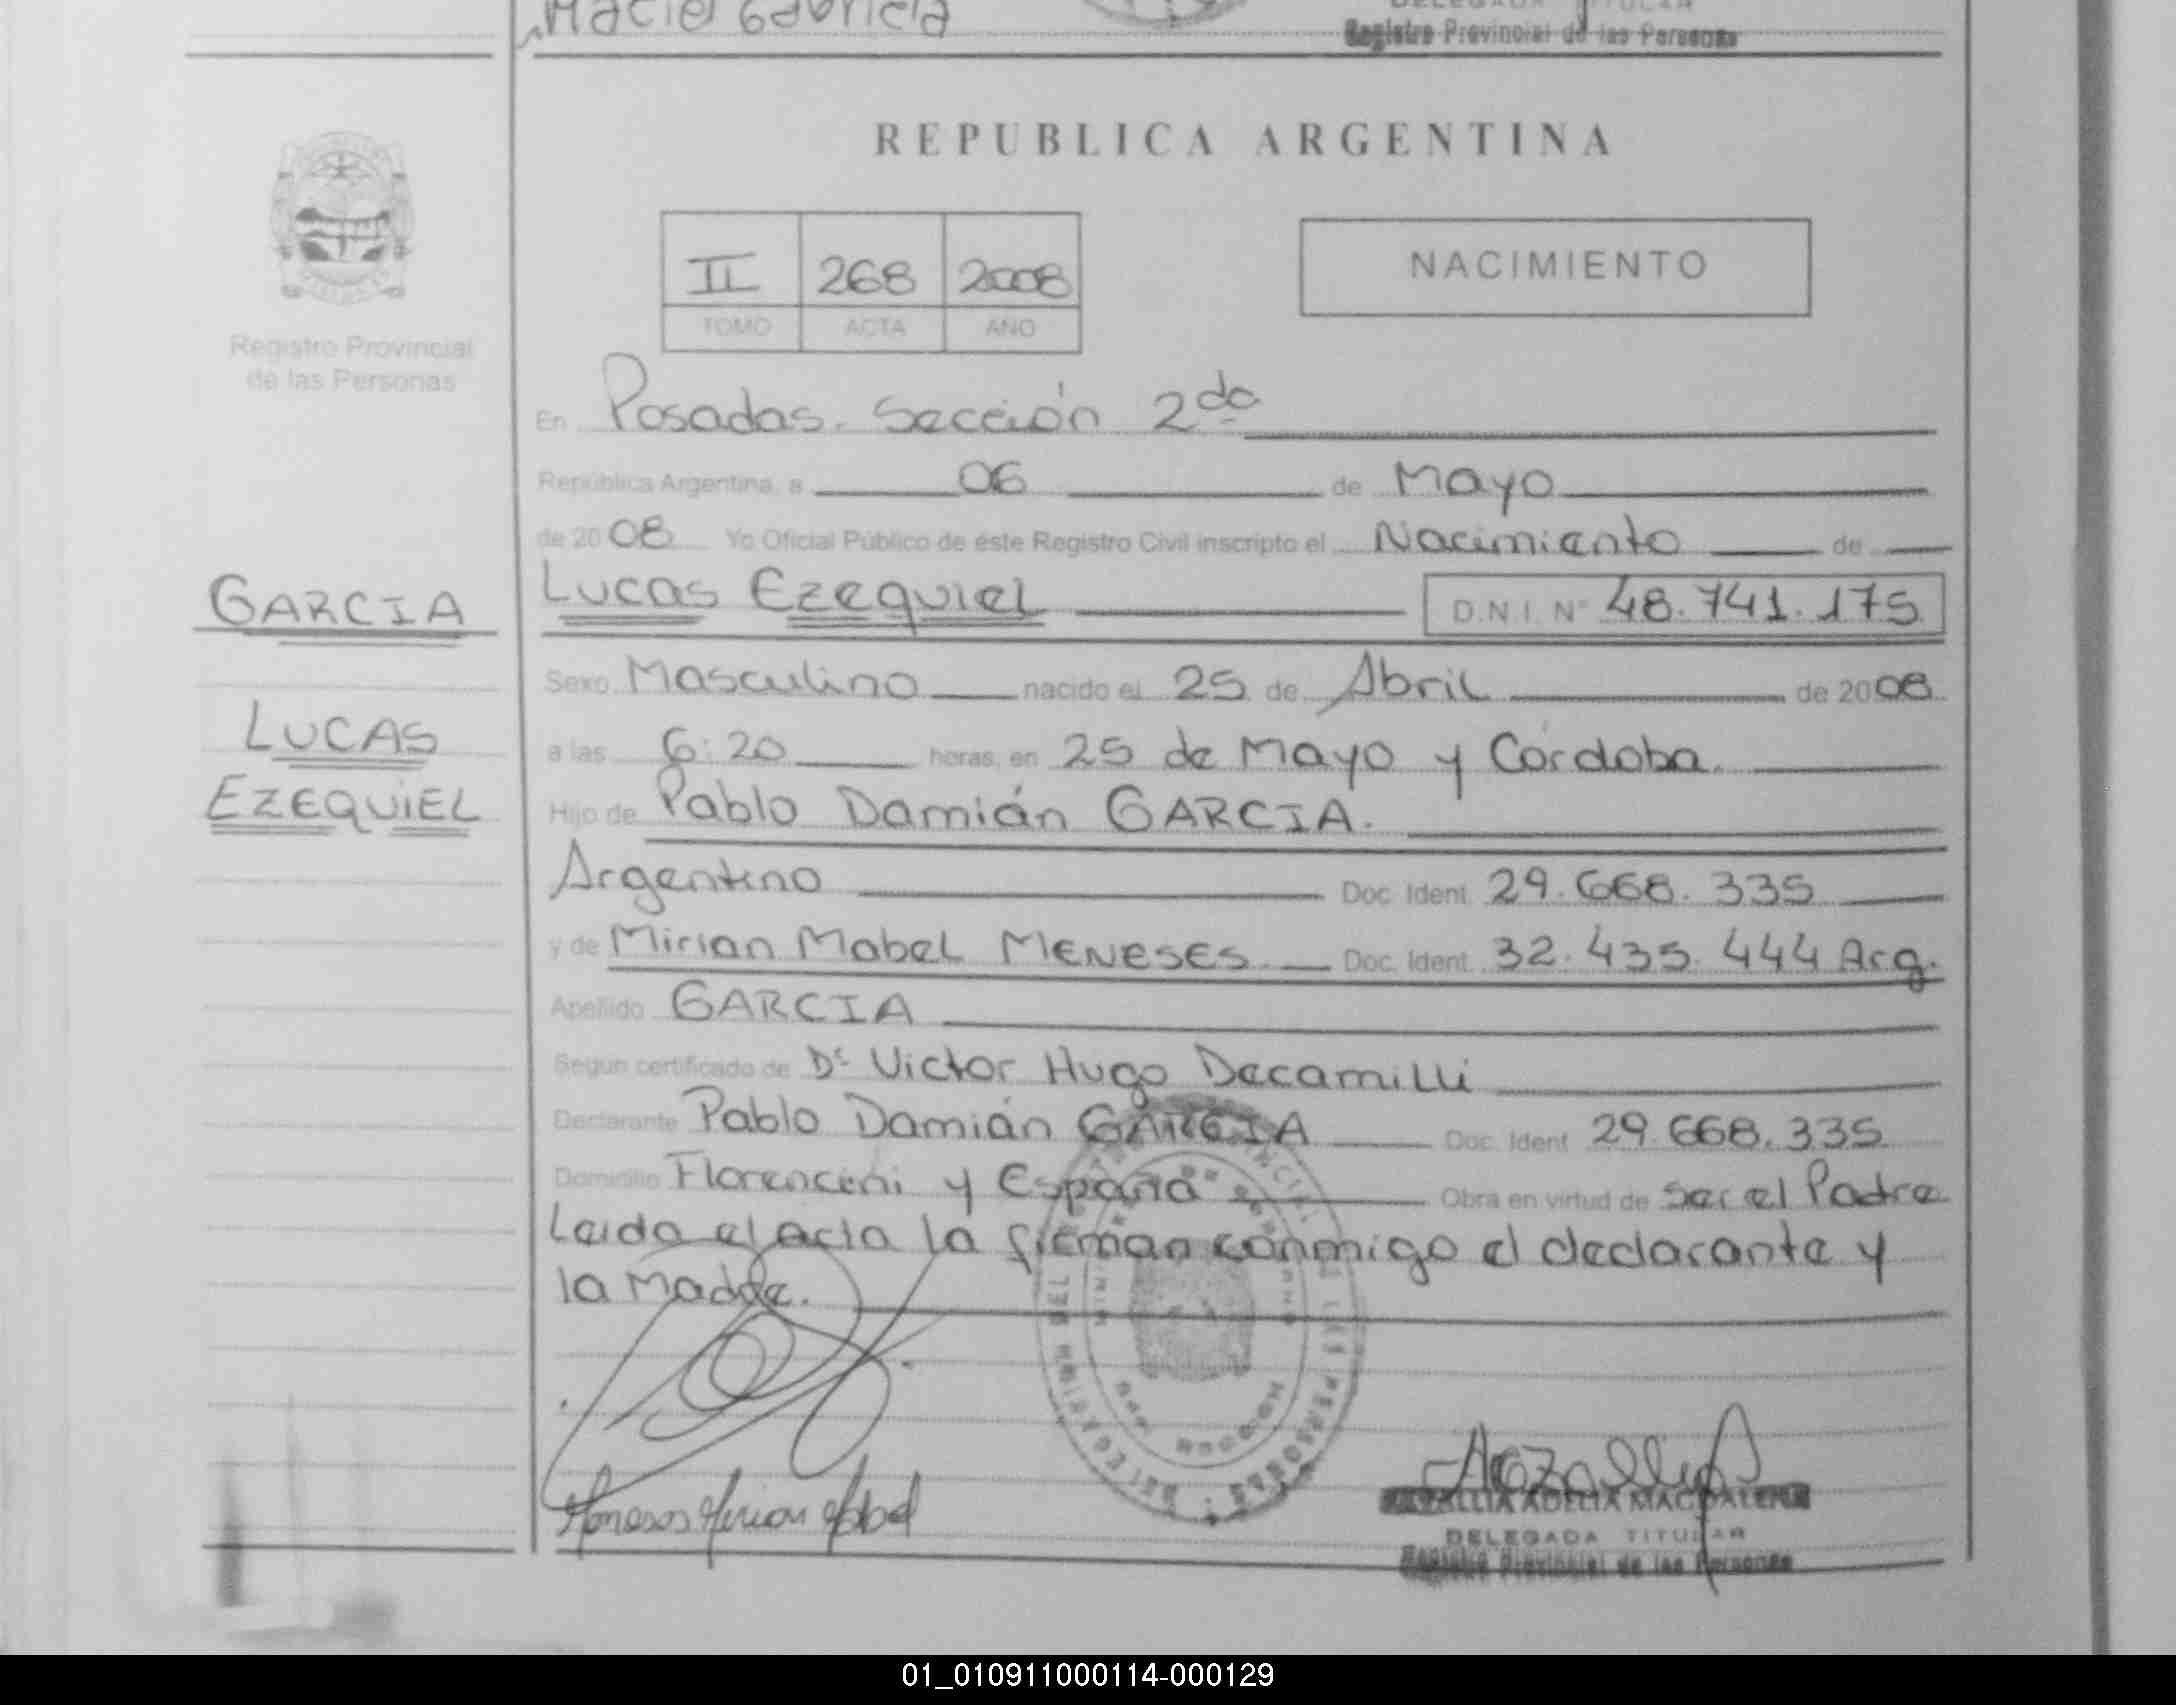 Maciel Gabriela
DELEGADA TITULAR
Registro Provincial de las Personas
REPUBLICA ARGENTINA
II 268 2008
TOMO ACTA AÑO
NACIMIENTO
Registro Provincial
de las Personas
En Posadas. Sección 2da
República Argentina, a 06 de Mayo
de 2008 Yo Oficial Público de éste Registro Civil inscripto el Nacimiento de
GARCIA
Lucas Ezequiel D.N.I. Nº 48.741.175
Sexo Masculino nacido el 25 de Abril de 2008
LUCAS
a las 6:20 horas, en 25 de Mayo y Córdoba.
EZEQUIEL
Hijo de Pablo Damián GARCIA.
Argentino Doc. Ident. 29.668.335
y de Mirian Mabel MENESES Doc. Ident. 32.435.444 Arg.
Apellido GARCIA
Segun certificado de Dr Victor Hugo Decamilli
Declarante Pablo Damián GARCIA Doc. Ident 29.668.335
Domicilio Florenceni y España Obra en virtud de ser el Padre
Leida el acta la firman conmigo el declarante y
la Madre.
Meneses Mirian Mabel
ADELIA MAGDALENA
DELEGADA TITULAR
Registro Provincial de las Personas
01_010911000114-000129